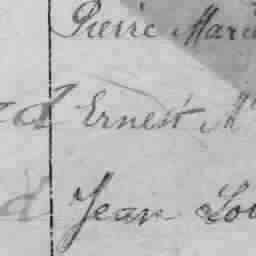 Pierre Marie
d Ernest M
d Jean Lou